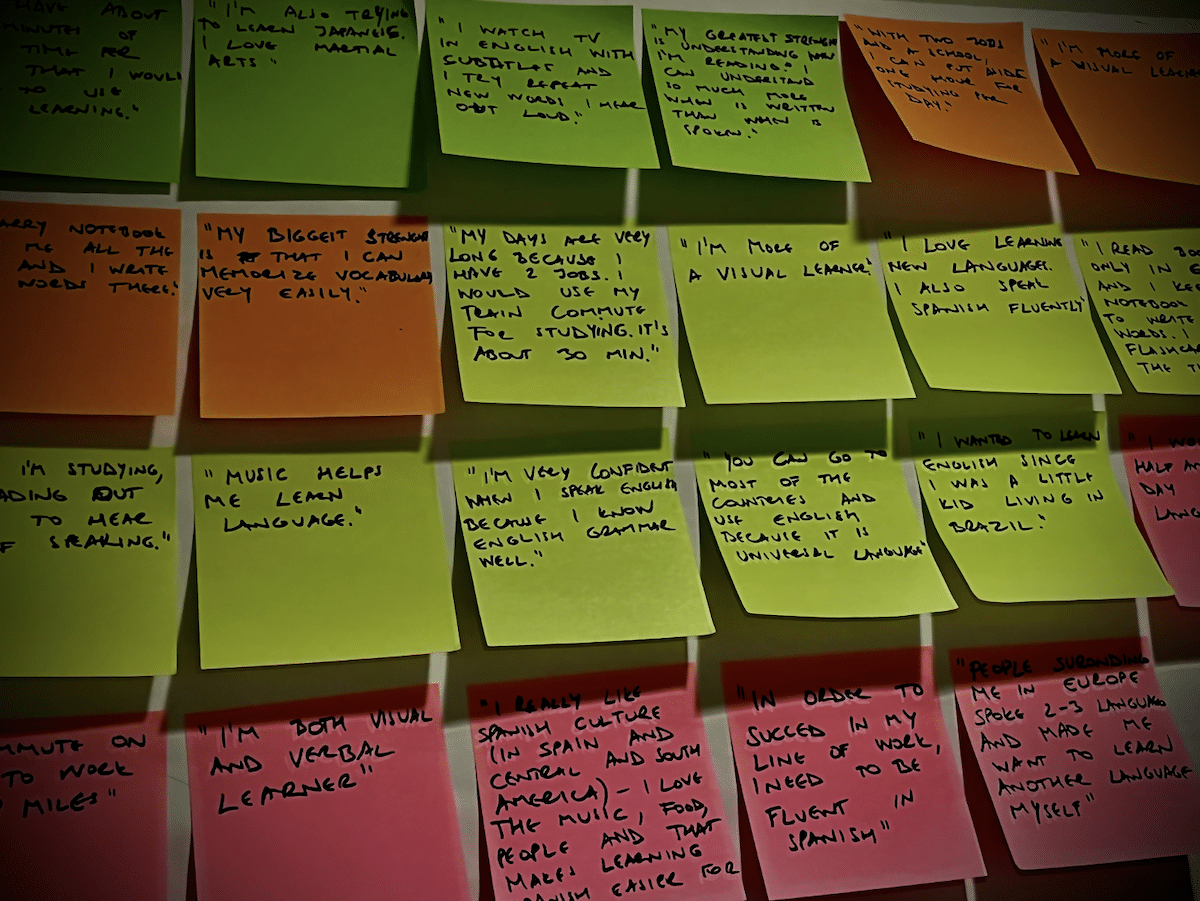 HAVE ABOUT
MINUTE OF
TIME PER
THAT I WOULD
TO USE
LEARNING."
"I'M ALSO TRYING
TO LEARN JAPANESE.
I LOVE MARTIAL
ARTS"
"I WATCH TV
IN ENGLISH WITH
SUBTITLES AND
I TRY REPEAT
NEW WORDS I HEAR
OUT LOUD."
"MY GREATEST STRENGTH
IS UNDERSTANDING
I'M READING. I
CAN UNDERSTAND
SO MUCH MORE
WHEN IS WRITTEN
THAN WHEN IS
SPOKEN."
"WITH TWO JOBS
AND A SCHOOL,
I CAN PUT ASIDE
ONE HOUR FOR
STUDYING PER
DAY."
"I'M MORE OF
A VISUAL LEARNER
ARRY NOTEBOOK
ME ALL THE
AND I WRITE
WORDS THERE."
"MY BIGGEST STRENGTH
IS THAT I CAN
MEMORIZE VOCABULARY
VERY EASILY."
"MY DAYS ARE VERY
LONG BECAUSE I
HAVE 2 JOBS. I
WOULD USE MY
TRAIN COMMUTE
FOR STUDYING. IT'S
ABOUT 30 MIN."
"I'M MORE OF
A VISUAL LEARNER"
"I LOVE LEARNING
NEW LANGUAGES.
I ALSO SPEAK
SPANISH FLUENTLY"
"I READ BOO
ONLY IN E
AND I KEE
NOTEBOOK
TO WRITE
WORDS. I
FLASHCA
THE TI
I'M STUDYING,
ADING OUT
TO HEAR
F SPEAKING."
"MUSIC HELPS
ME LEARN
LANGUAGE."
"I'M VERY CONFIDENT
WHEN I SPEAK ENGLISH
BECAUSE I KNOW
ENGLISH GRAMMAR
WELL."
"YOU CAN GO TO
MOST OF THE
COUNTRIES AND
USE ENGLISH
BECAUSE IT IS
UNIVERSAL LANGUAGE"
"I WANTED TO LEARN
ENGLISH SINCE
I WAS A LITTLE
KID LIVING IN
BRAZIL."
"I WO
HALF AN
DAY
LANG
MMUTE ON
TO WORK
MILES"
"I'M BOTH VISUAL
AND VERBAL
LEARNER"
"I REALLY LIKE
SPANISH CULTURE
(IN SPAIN AND
CENTRAL AND SOUTH
AMERICA) - I LOVE
THE MUSIC, FOOD,
PEOPLE AND THAT
MAKES LEARNING
PANISH EASIER FOR
"IN ORDER TO
SUCCED IN MY
LINE OF WORK,
I NEED TO BE
FLUENT IN
SPANISH"
"PEOPLE SURONDING
ME IN EUROPE
SPOKE 2-3 LANGUAGE
AND MADE ME
WANT TO LEARN
ANOTHER LANGUAGE
MYSELF"